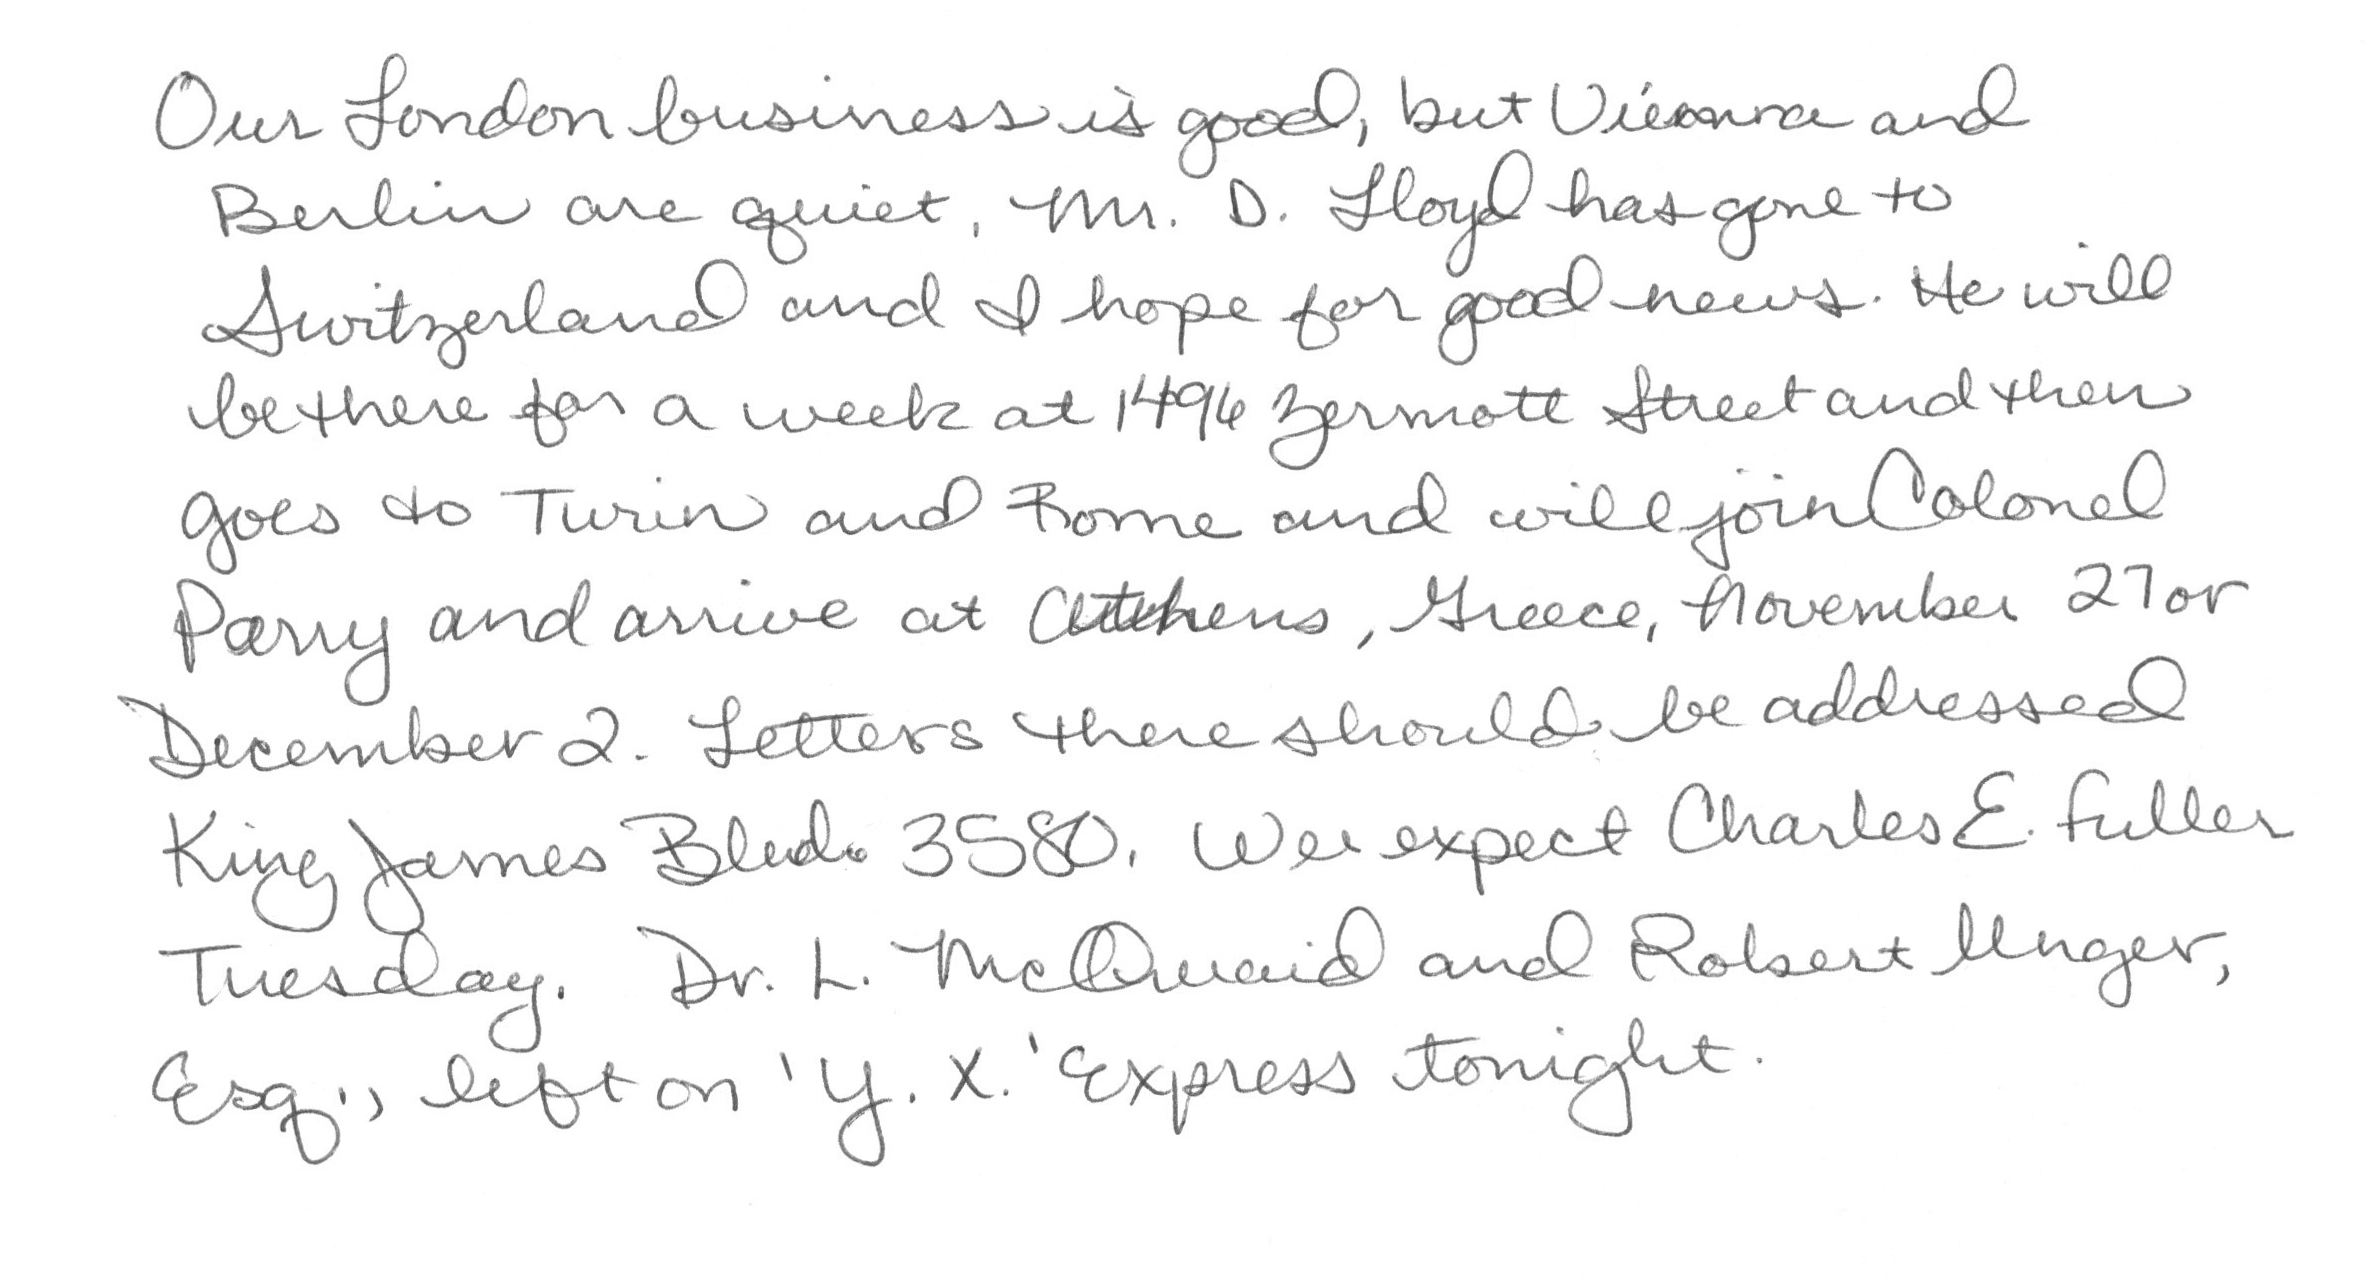 Our London business is good, but Vienna and
Berlin are quiet. Mr. D. Lloyd has gone to
Switzerland and I hope for good news. He will
be there for a week at 1496 Zermott Street and then
goes to Turin and Rome and will join Colonel
Parry and arrive at Athens, Greece, November 27 or
December 2. Letters there should be addressed
King James Blvd. 3580. We expect Charles E. Fuller
Tuesday. Dr. L. McQuaid and Robert Unger,
Esq., left on 'Y. X.' Express tonight.